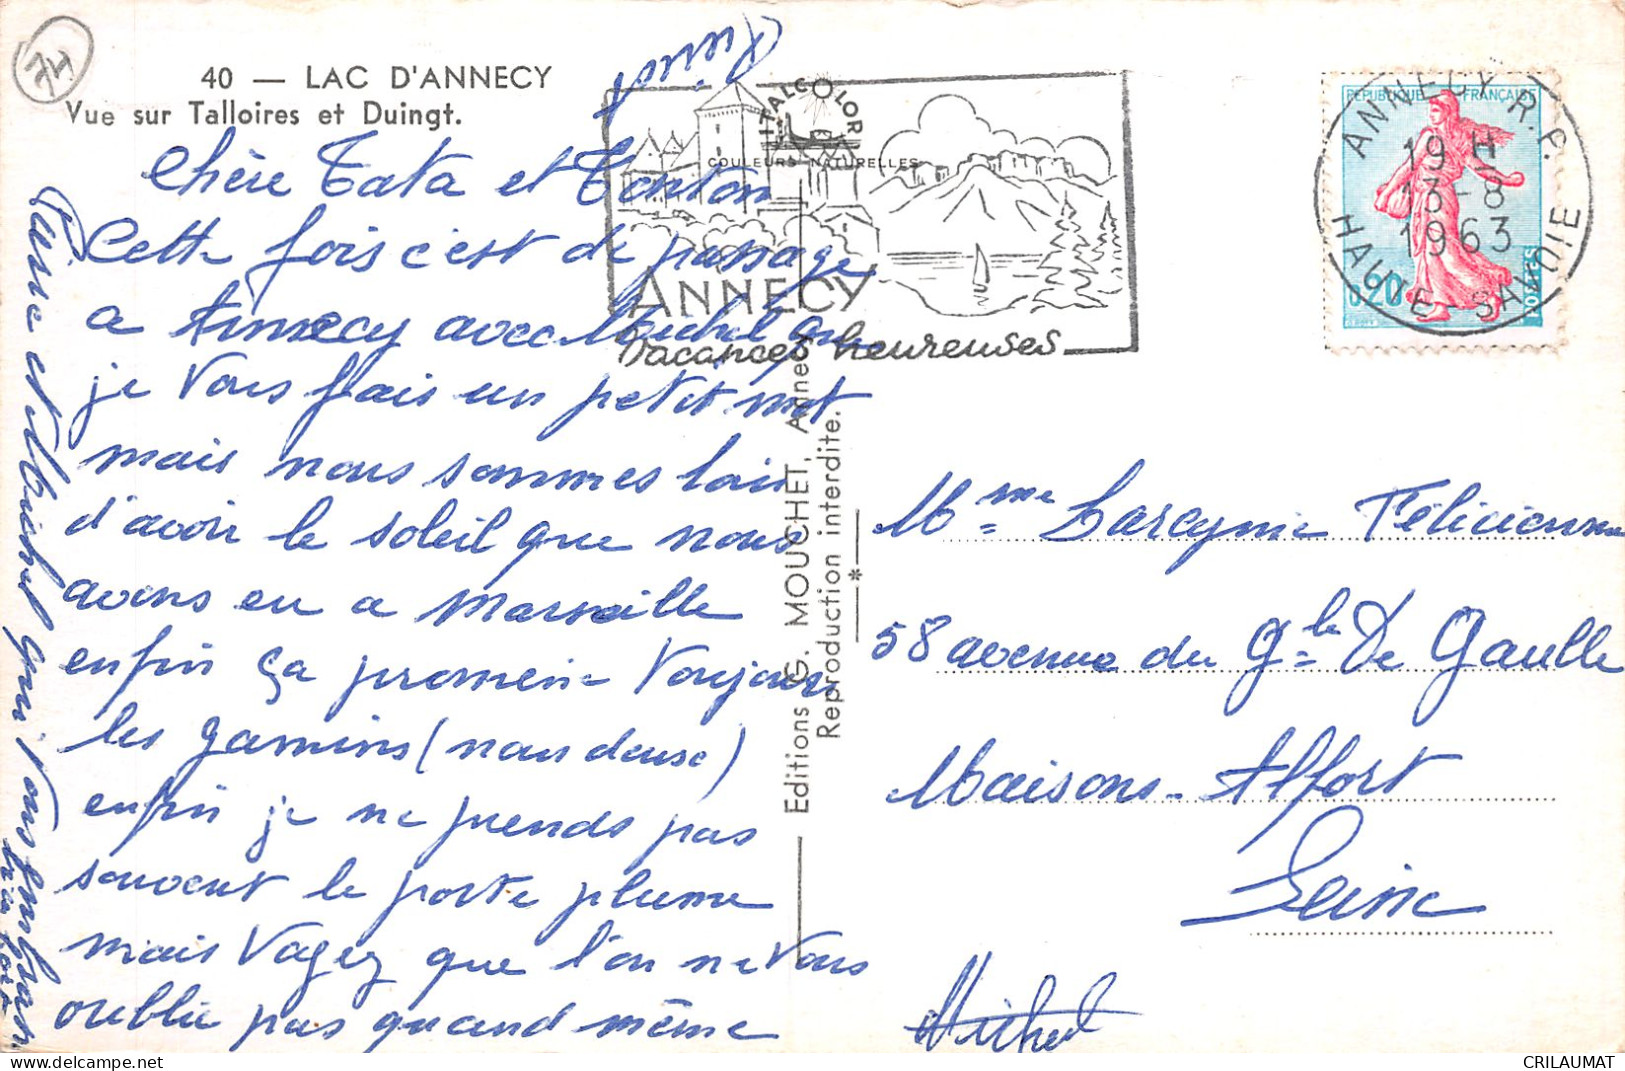 74
40 — LAC D'ANNECY
Vue sur Talloires et Duingt.
Chère Tata et Tonton
Cette fois c'est de passage
a Annecy avec Michel que
je Vous fais un petit mot
mais nous sommes loin
d'avoir le soleil que nous
avons eu a Marseille
enfin ça promène Toujours
les gamins (nous deuse)
enfin je ne prends pas
souvent le porte plume
mais Voyez que l'on ne Vous
oublie pas quand même
et Michel qui Vous embrasse
ITALCOLOR
COULEURS NATURELLES
ANNECY
Vacances heureuses
Editions G. MOUCHET, Annecy
Reproduction interdite.
*
REPUBLIQUE FRANÇAISE
0,20
POSTES
ANNECY R.P.
19 H
13-8
1963
HAUTE-SAVOIE
Mme Félicienne
58 avenue du Gle De Gaulle
Maisons-Alfort
Seine
Michel
CRILAUMAT